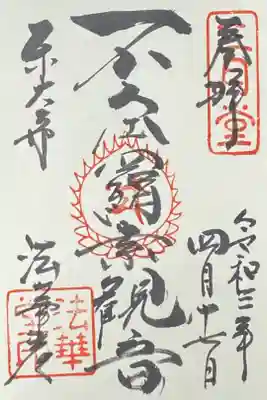 奉拝
三月堂
令和三年
四月十七日
不空羂索觀音
東大寺
法華堂
法華堂印